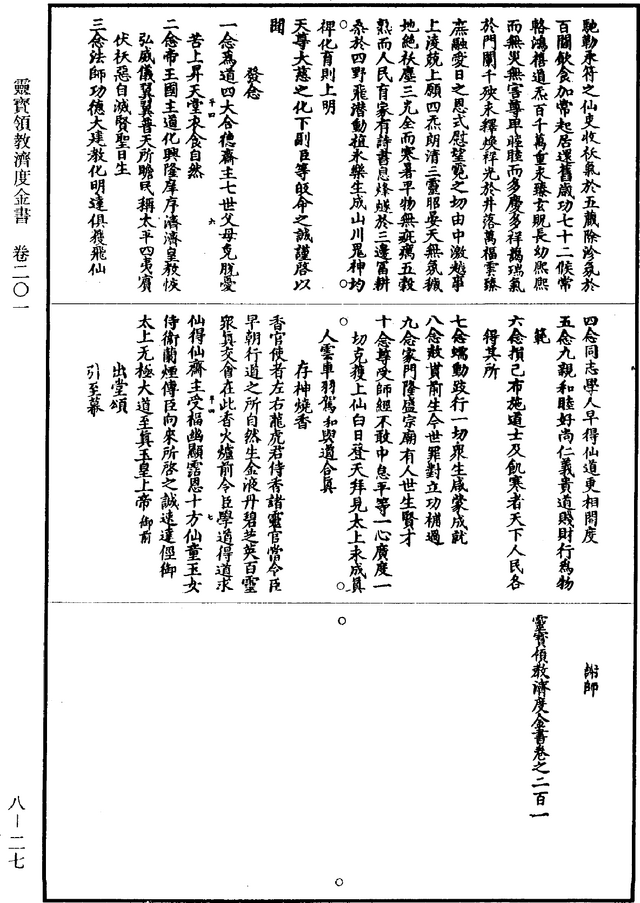 靈寶領教濟度金書　卷二〇一
八－二七
馳勅永符之仙吏收袄氣於五藏除沴氣於
百關飲食加常起居還舊歲功七十二候常
臻鴻禧道炁百千萬重永臻玄貺長幼熙熙
而無災無害尊卑睦睦而多慶多祥靄瑞氣
於門闌千殃永釋煥祥光於井落萬福雲臻
庶融愛日之恩式慰望霓之切由中激越事
上淩兢上願四炁朗清三靈昭晏天無氛穢
地絕袄塵三光全而寒暑平物無疵癘五穀
熟而人民育家有詩書息烽燧於三邊富耕
桑於四野飛潛動植永樂生成山川鬼神均
禆化育則上明
天尊大慈之化下副臣等皈命之誠謹啓以
聞
發念
一念為道四大合德齋主七世父母克脫憂
苦上昇天堂衣食自然
二念帝王國主道化興隆庠序濟濟皇教恢
弘威儀翼翼普天所瞻民稱太平四夷賓
伏袄惡自滅賢聖日生
三念法師功德大建教化明達俱獲飛仙
四念同志學人早得仙道更相開度
五念九親和睦好尚仁義貴道賤財行為物
範
六念損己布施道士及飢寒者天下人民各
得其所
七念蠕動跂行一切眾生咸蒙成就
八念救貫前生今世罪對立功補過
九念家門隆盛宗廟有人世生賢才
十念尊受師經不敢中怠平等一心廣度一
切克獲上仙白日登天拜見太上永成真
人雲車羽駕和與道合真
存神燒香
香官使者左右龍虎君侍香諸靈官當令臣
早朝行道之所自然生金液丹碧芝英百靈
眾真交會在此香火爐前令臣學道得道求
仙得仙齋主受福幽顯露恩十方仙童玉女
侍衛蘭煙傳臣向來所啓之誠速達徑御
太上无極大道至真玉皇上帝御前
出堂頌
引至幕
謝師
靈寶領教濟度金書卷之二百一